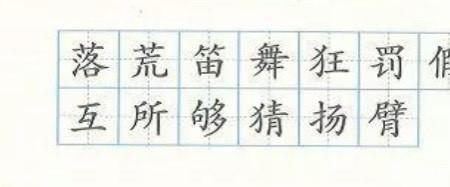 落荒笛舞狂罚假
互所够猜扬臂